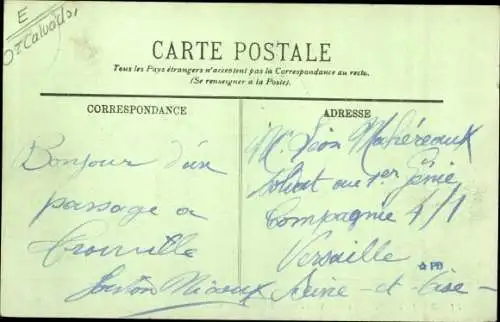 E
Calvados
CARTE POSTALE
Tous les Pays étrangers n'acceptent pas la Correspondance au recto.
(Se renseigner à la Poste).
CORRESPONDANCE
ADRESSE
Bonjour d'un
passage a
Trouville
Mr Léon
soldat au 1er Génie
Compagnie 4/1
Versaille
Seine - et - Oise -
☆ PD